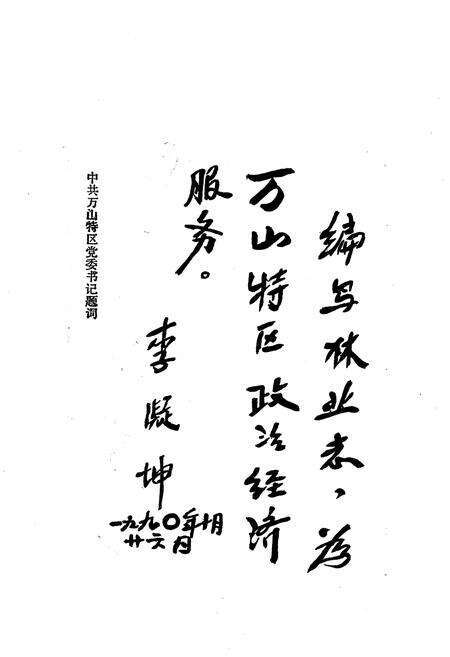 编写林业志，为
万山特区政治经济
服务。
李凝坤
一九九〇年十月
廿六日
中共万山特区党委书记题词